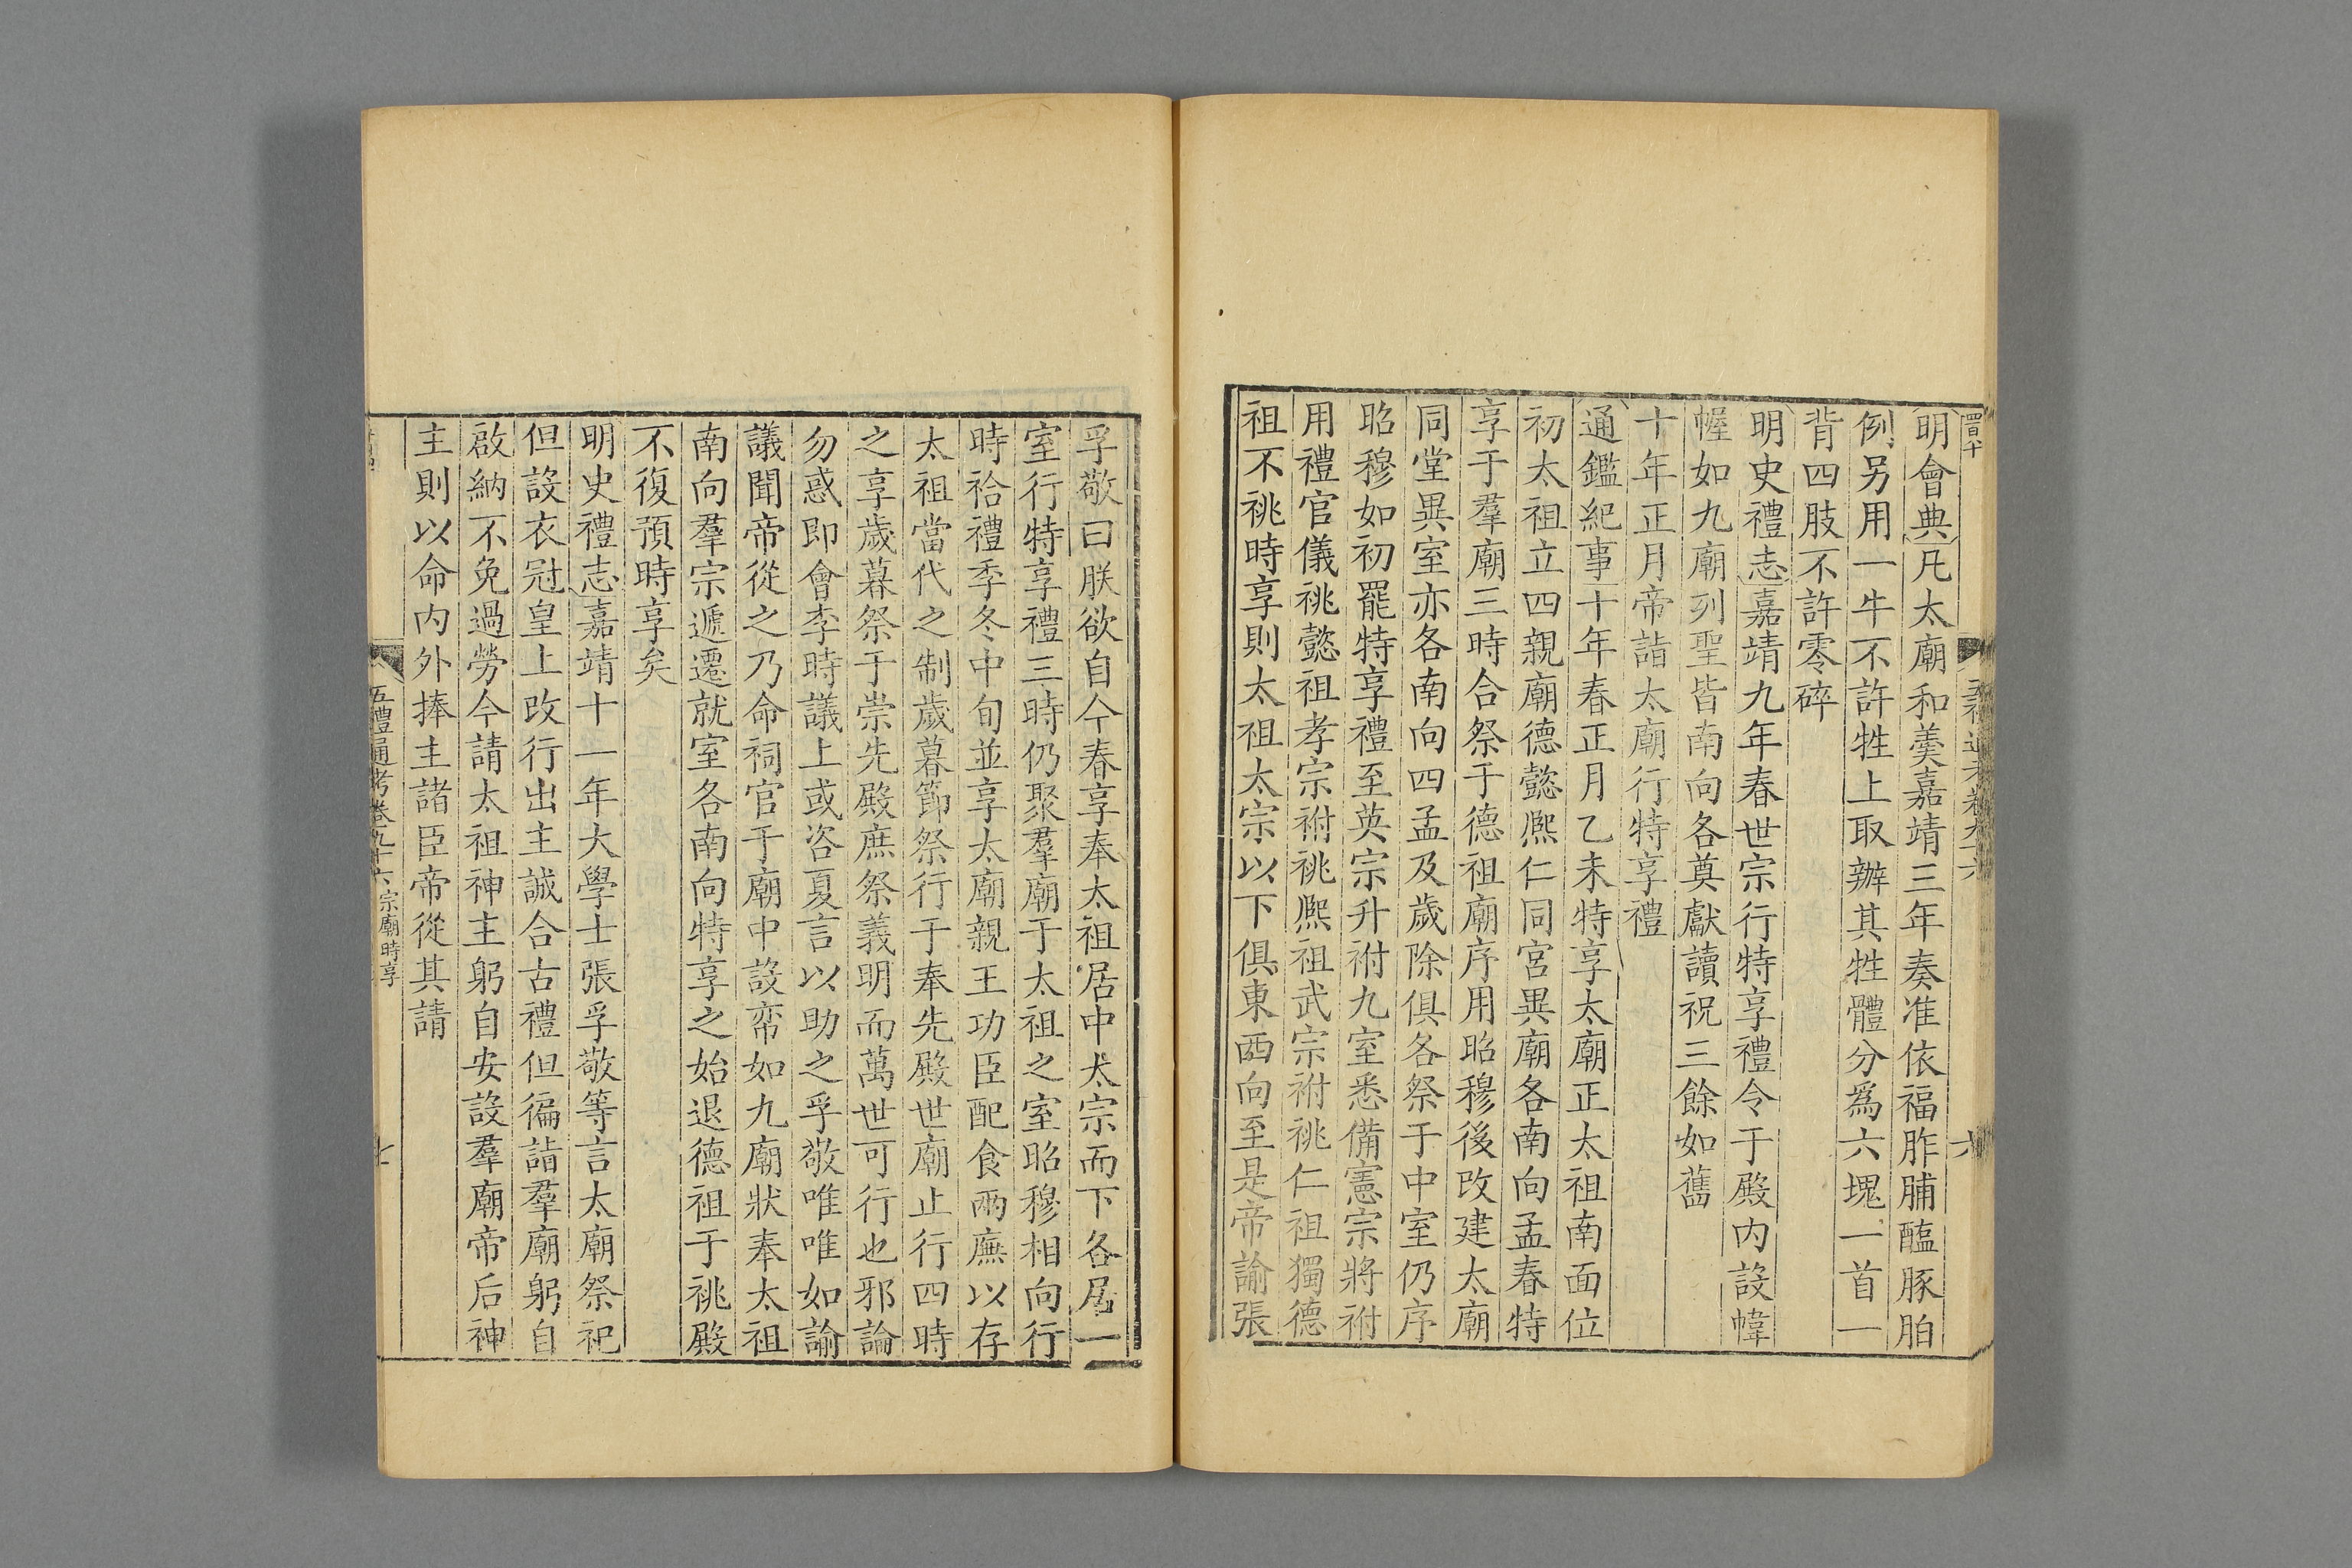 明會典凡太廟和羮嘉靖三年奏准依福胙脯醢豚胉
例另用一牛不許牲上取辦其牲體分爲六塊一首一
背四肢不許零碎
明史禮志嘉靖九年春世宗行特享禮令于殿内設幃
幄如九廟列聖皆南向各奠獻讀祝三餘如舊
十年正月帝詣太廟行特享禮
通鑑紀事十年春正月乙未特享太廟正太祖南面位
初太祖立四親廟德懿熈仁同宮異廟各南向孟春特
享于羣廟三時合祭于德祖廟序用昭穆後改建太廟
同堂異室亦各南向四孟及歲除俱各祭于中室仍序
昭穆如初罷特享禮至英宗升祔九室悉備憲宗將祔
用禮官儀祧懿祖孝宗祔祧熈祖武宗祔祧仁祖獨德
祖不祧時享則太祖太宗以下俱東西向至是帝諭張
孚敬曰朕欲自今春享奉太祖居中太宗而下各居一
室行特享禮三時仍聚羣廟于太祖之室昭穆相向行
時祫禮季冬中旬並享太廟親王功臣配食兩廡以存
太祖當代之制歲暮節祭行于奉先殿世廟止行四時
之享歲暮祭于崇先殿庶祭義明而萬世可行也邪論
勿惑即會李時議上或咨夏言以助之孚敬唯唯如諭
議聞帝從之乃命祠官于廟中設帟如九廟狀奉太祖
南向羣宗遞遷就室各南向特享之始退德祖于祧殿
不復預時享矣
明史禮志嘉靖十一年大學士張孚敬等言太廟祭祀
但設衣冠皇上改行出主誠合古禮但徧詣羣廟躬自
啟納不免過勞今請太祖神主躬自安設羣廟帝后神
主則以命内外捧主諸臣帝從其請
五禮通考卷九十六 宗廟時享
七